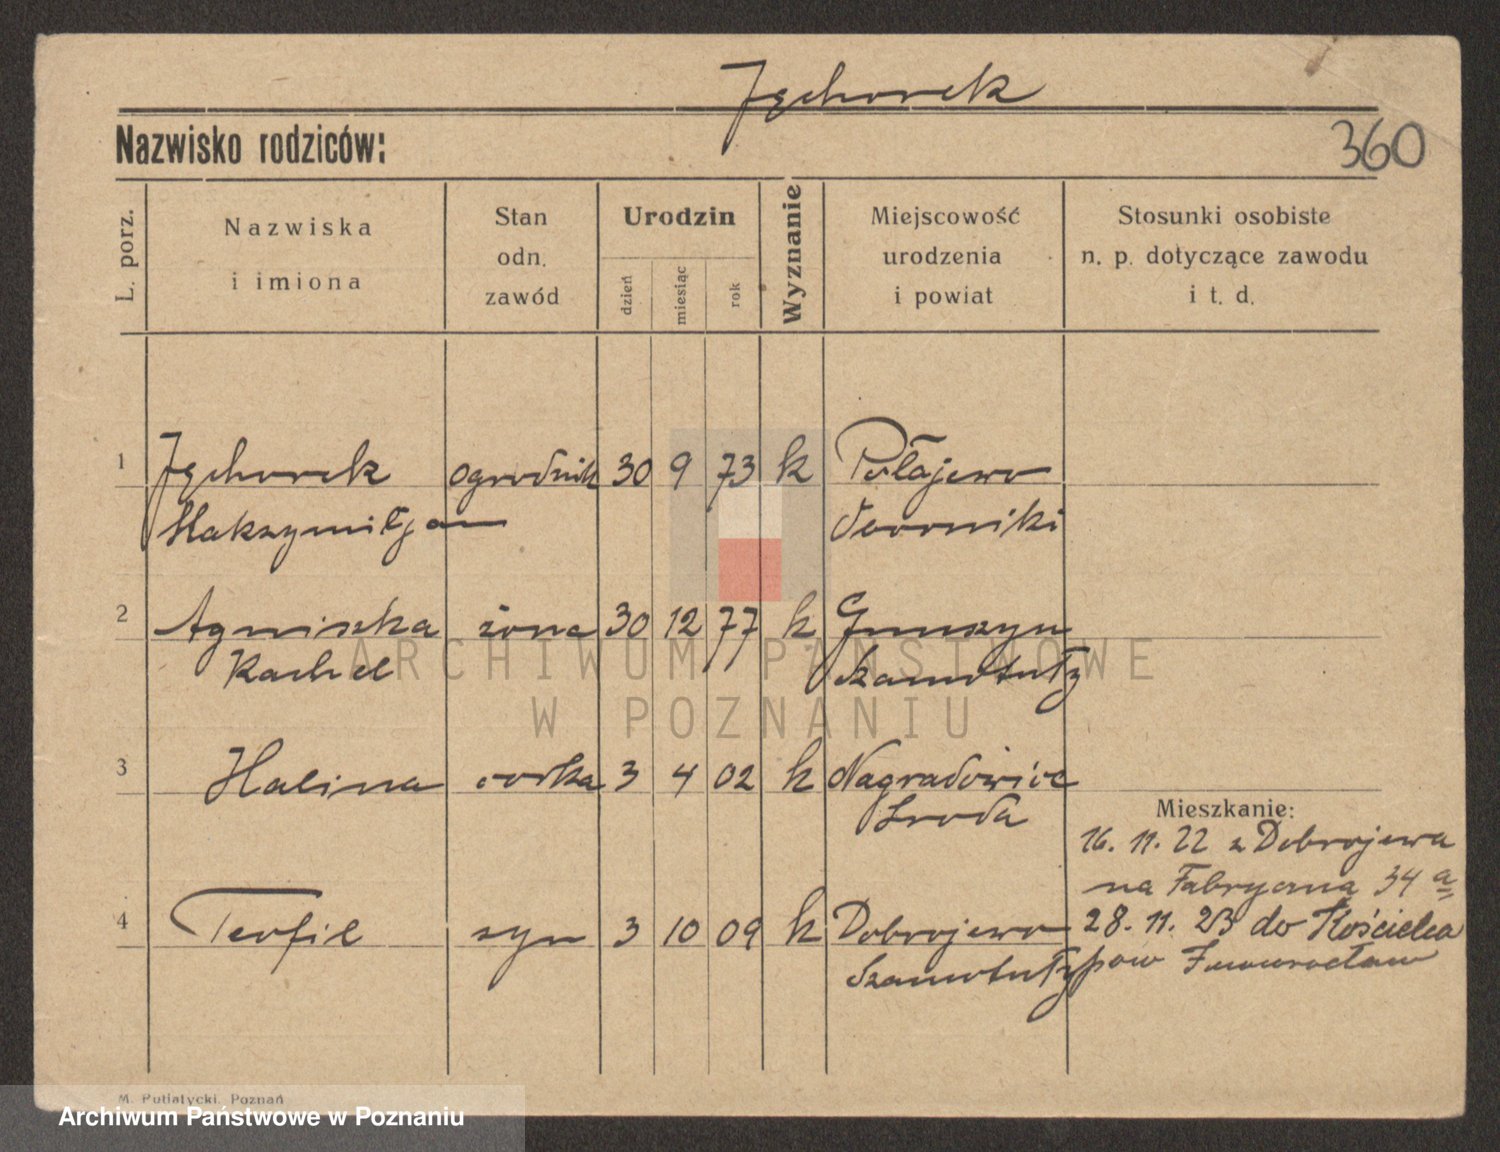 Jęchorek
Nazwisko rodziców:
360
L. porz.
Nazwiska
i imiona
Stan
odn.
zawód
Urodzin
dzień
miesiąc
rok
Wyznanie
Miejscowość
urodzenia
i powiat
Stosunki osobiste
n. p. dotyczące zawodu
i t. d.
1 Jęchorek ogrodnik 30 9 73 k Połajewo
Maksymiljan
2 Agniszka żona 30 12 77 k
Rachel Szamotuły
ARCHIWUM PAŃSTWOWE
W POZNANIU
3 Halina corka 3 4 02 k Nagradowice
Sroda
Mieszkanie:
16. 11. 22 z Dobrojewa
na Fabryczną 34 a
4 Teofil syn 3 10 09 k Dobrojewo 28. 11. 23 do Kościelca
Szamotuły pow Inowrocław
M. Putiatycki, Poznań
Archiwum Państwowe w Poznaniu